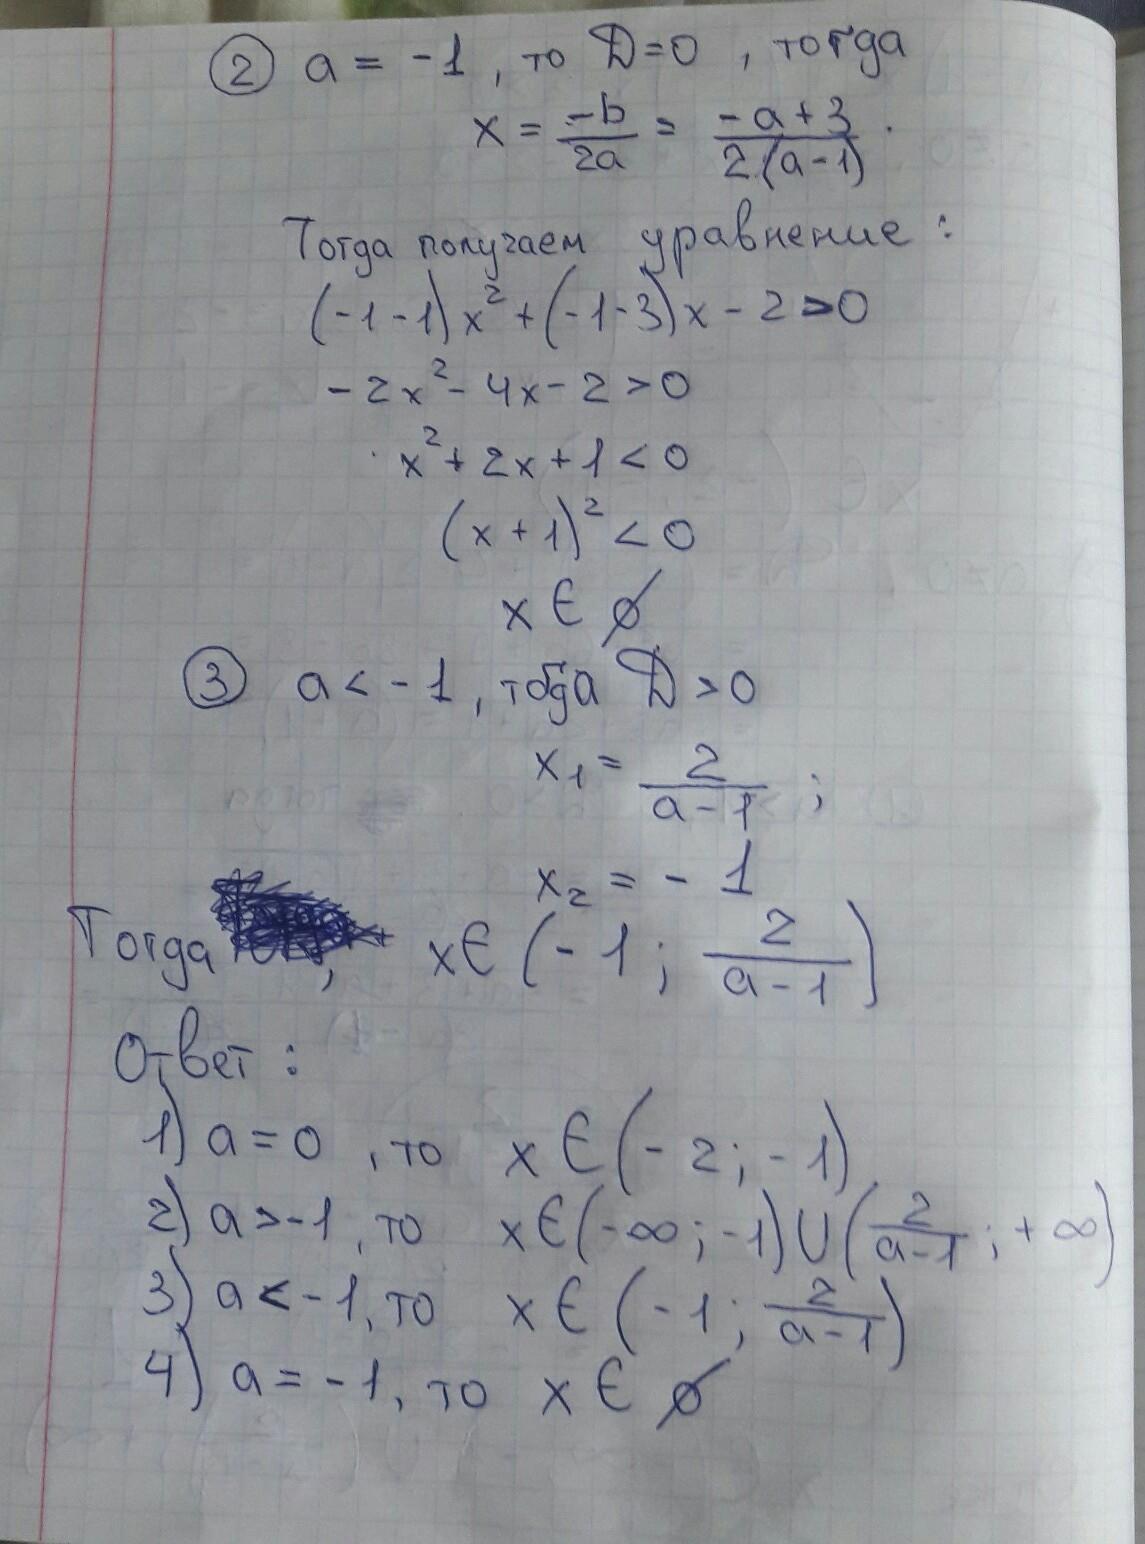 ② a = -1, то D=0, тогда
x = -b/2a = -a+3/2(a-1).
Тогда получаем уравнение:
(-1-1)x²+(-1-3)x-2>0
-2x²-4x-2>0
x²+2x+1<0
(x+1)²<0
x ∈ ∅
③ a < -1, тогда D>0
x₁ = 2/a-1;
x₂ = -1
Тогда, x∈(-1; 2/a-1)
Ответ:
1) a=0, то x∈(-2;-1)
2) a>-1, то x∈(-∞;-1)∪(2/a-1;+∞)
3) a<-1, то x∈(-1; 2/a-1)
4) a=-1, то x∈∅